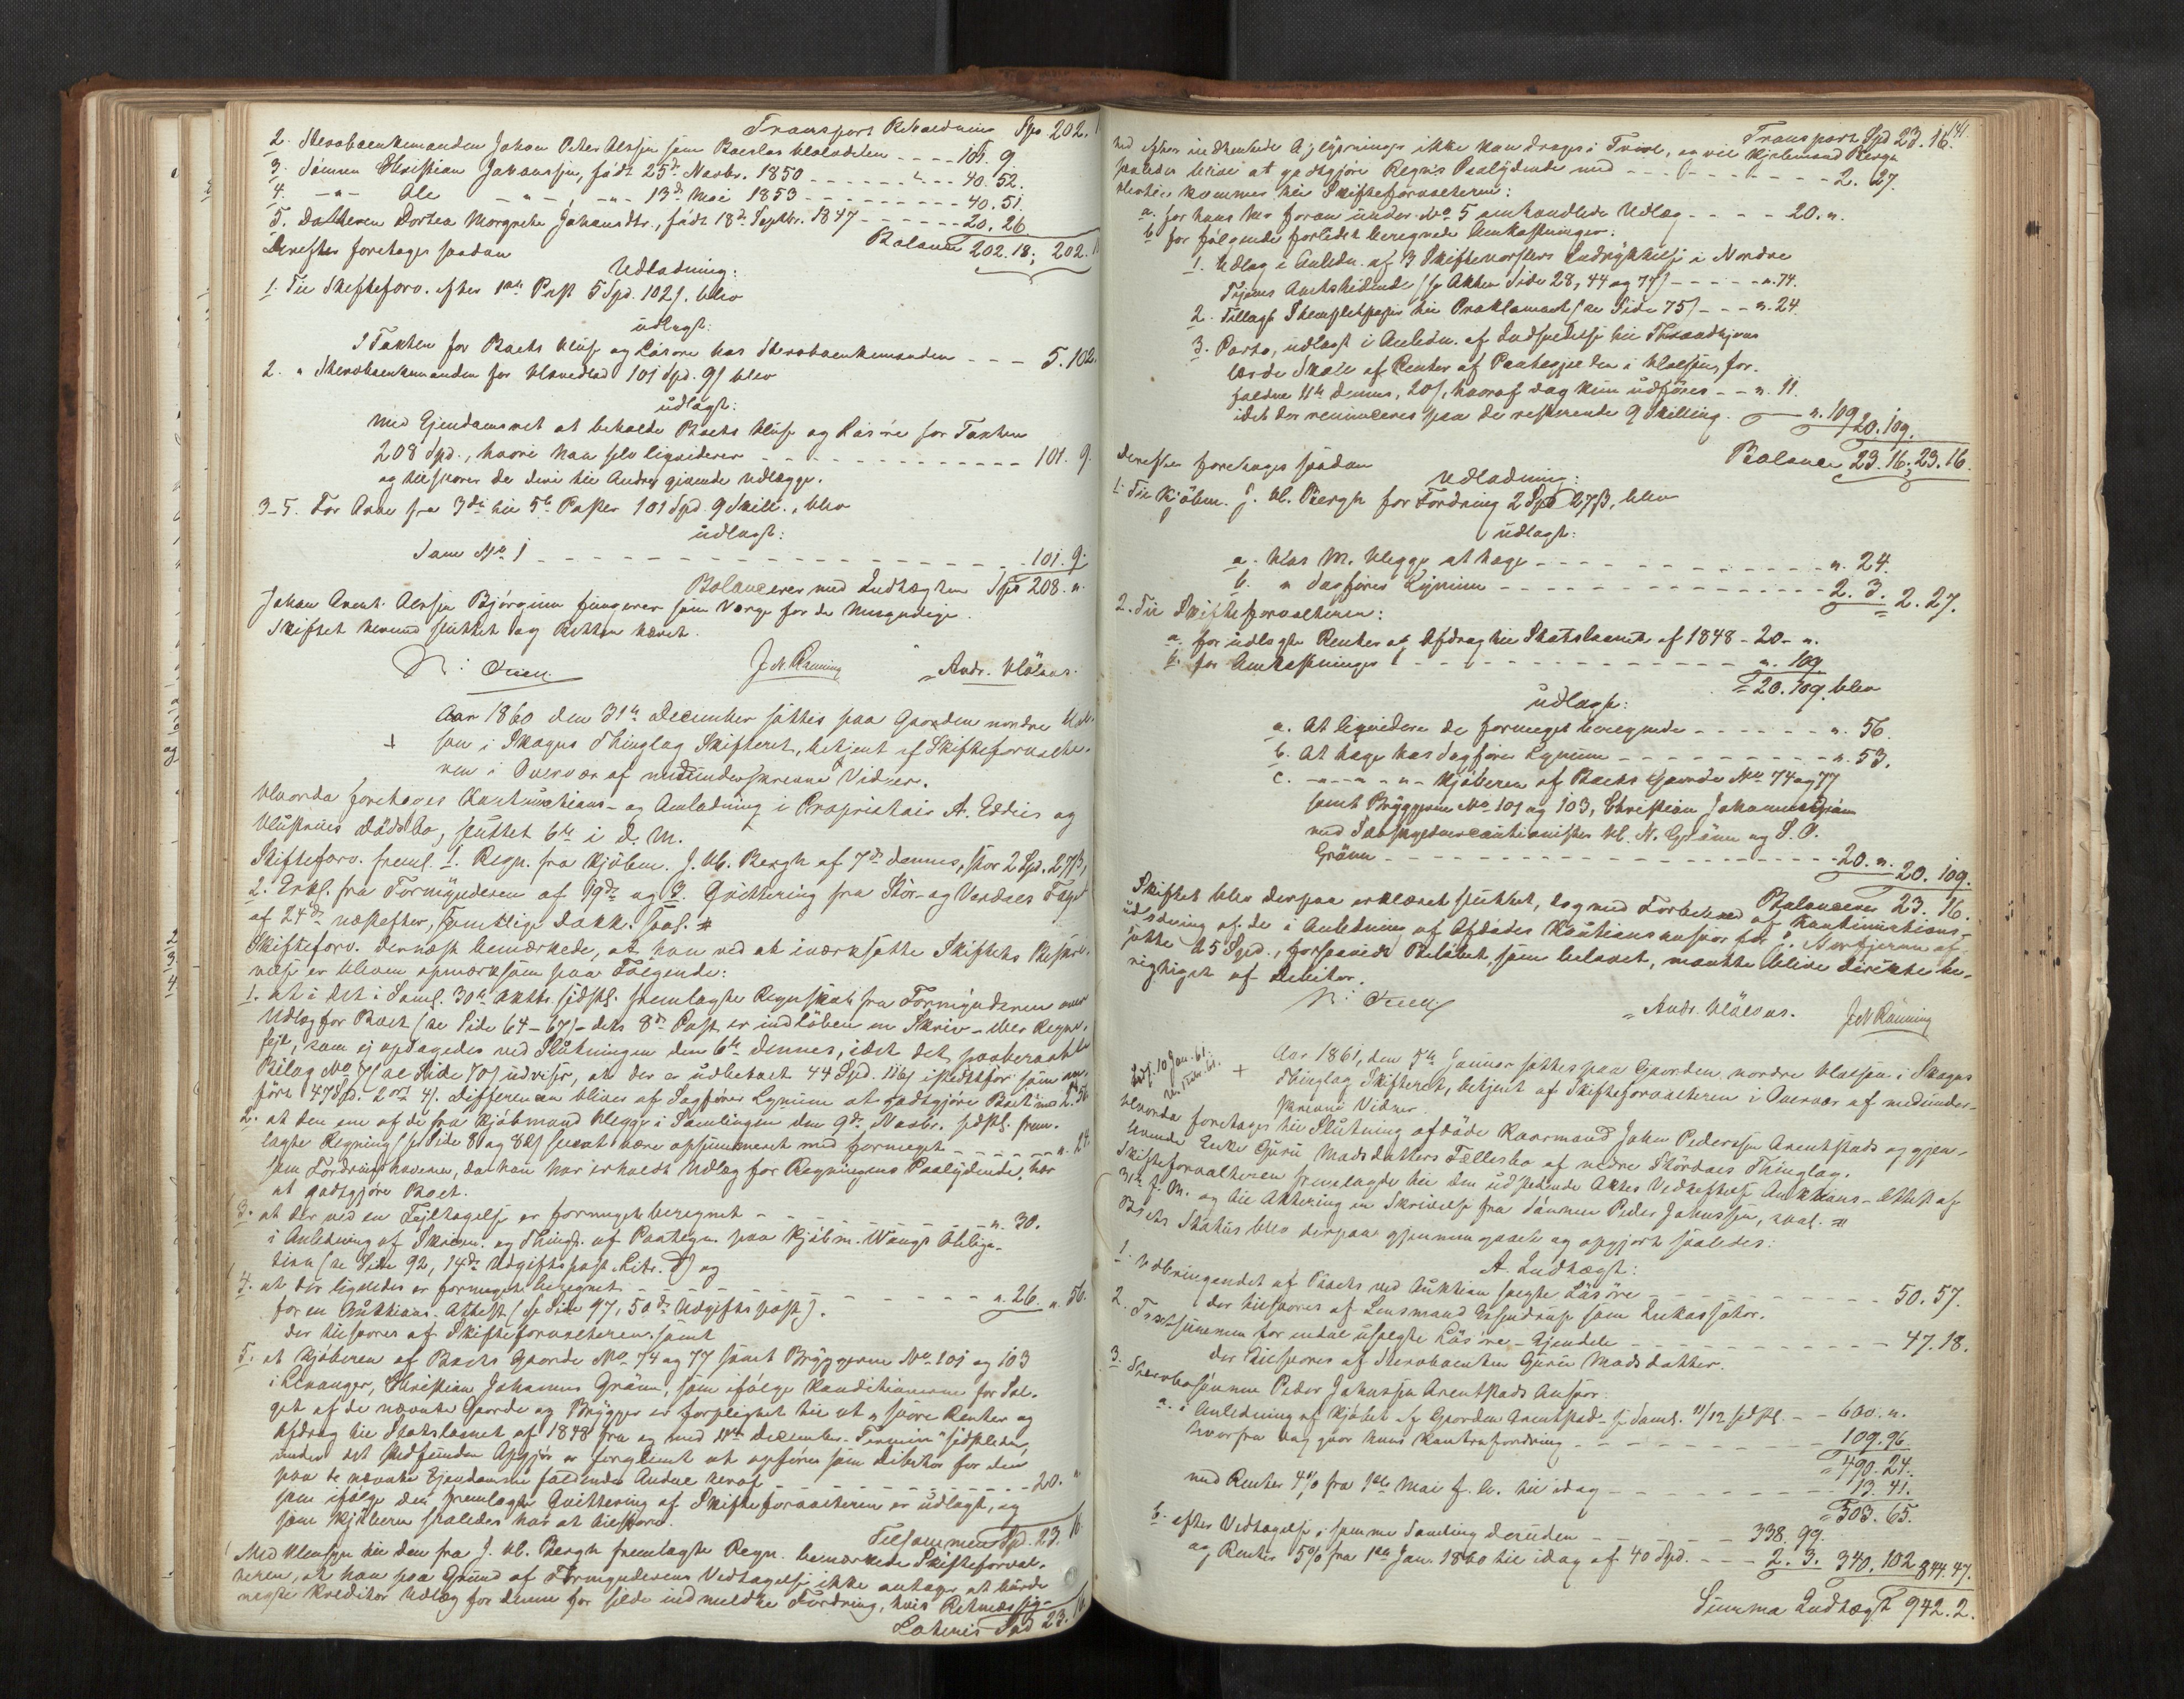 Transport Beholdning Spd 202.
2. Sterbboenkemanden Johan Peter Olsen som Boeslos Hovedlod - - - - 101. 9.
3. Sønnen Christian Johanssen, født 25de Novbr. 1850 - - - - - - 40. 52.
4. -"- Ole -"- -"- 13de Mai 1853 - - - - - - - - 40. 51.
5. Datteren Dortea Margrete Johansdtr., født 18de Septbr. 1847 - - - - - 20. 26
Balance 202. 18; 202.
Derefter foretages saadan
Udlodning:
1. Til Skifteforv. efter 1ste Post 5 Spd. 102 s. blev
udlagt:
I Taxten for Boets Huse og Løsøre hos Sterbboenkemanden - - - 5. 102.
2. " Sterbboenkemanden for Hovedlod 101 Spd. 9 s blev
udlagt:
Med Ejendomsret at beholde Boets Huse og Løsøre for Taxten
208 Spd., hvori han selv liqviderer - - - - - - - - - 101. 9.
og tilsvarer de deri til Andre givende Udlægge.
3-5. For Arve fra 3die til 5te Poster 101 Spd. 9 Skill., blev
udlagt:
Som No 1 - - - - - - - - - - - - - - - 101. 9.
Balancerer med Indtægten Spd 208. "
Johan Arent Olsen Bjørginn fungerer som Værge for de Umyndige.
Skiftet hermed sluttet og Retten hævet.
J. N. Rønning Andr. Holaas.
Aar 1860 den 31te December sattes paa Gaarden nordre
+ i Skogns Thinglag Skifteret, betjent af Skifteforvalte-
ren i Overvær af medunderskrevne Vidner.
Hvorda foretoges Continuations- og Omlodning i Proprietair A. Eddies og
Hustrues Dødsbo, sluttet 6te i D. M.
Skifteforv. freml. 1. Regn. fra Kjøbm. J. Hl. Bergh af 7de dennes, stor 2 Spd. 27 ß,
2. Erkl. fra Formynderen af 19de og 3. Qvittering fra Stør- og Værdals Fogd
af 24de næstefter, samtlige Dokk. saal. #
Skifteforv. dernæst bemærkede, at han ved at iværksætte Skiftets Beskri-
velse er bleven opmærksom paa Følgende:
1. at i det i Saml. 30te Oktbr. sidstl. fremlagte Regnskab fra Formynderen over
Udlæg for Boet (se Side 64-67) - dets 8de Post er indløben en Skriv- eller Regne-
fejl, som ej opdagedes ved Slutningen den 6te dennes, idet det paaberaabte
Bilag No 7 (se Side 70) udviser, at der er udbetalt 44 Spd. 116 s istedetfor som an-
ført 47 Spd. 2 ort 4 s. Differencen bliver af Sagfører Lynum at godtgjøre Boet med 2. 56
2. at den ene af de fra Kjøbmand Klegg i Samlingen den 9de Novbr. sidstl. frem-
lagte Regning (se Side 8 og 82) sees at være opsummeret med formeget - - - - - ". 24.
som Fordringshaveren, da han har erholdt Udlæg for Regningens Paalydende, har
at godtgjøre Boet.
3. at der ved en Fejltagelse er formeget beregnet - - - - - - - ". 30.
i Anledning af Skriv. og Thingl. af Panteopg. paa Kjøbm. Wangs Obliga-
tion (se Side 92, 14de Udgiftspost Litr. d) og
4. at der ligeledes er formeget beregnet - - - - - - - - ". 26. ". 56.
for en Auktions-Attest (se Side 97, 50de Udgiftspost).
der tilsvares af Skifteforvalteren. samt
5. at Kjøberen af Boets Gaarde No 74 og 77 samt Bryggerne No 101 og 103
i Levanger, Christian Johannes Grønn, som ifølge Konditionerne for Sal-
get af de nævnte Gaarde og Brygger er forpligtet til at "svare Renter og
Afdrag til Statslaanet af 1848 fra og med 11te December-Termin" sidstleden,
under det Stedfundne Opgjør er forglemt at opføres som Debitor for den
paa de nævnte Ejendomme faldende Andel heraf - - - - - - - 20. "
som ifølge den fremlagte Qvittering af Skifteforvalteren er udlagt, og
som Kjøberen saaledes har at tilsvare.
Tilsammen Spd. 23. 16.
Med Hensyn til den fra J. Hl. Bergh fremlagte Regn. bemærkede Skifteforval-
teren, at han paa Grund af Formynderens Vedtagelse ikke antager at burde
negte Kreditor Udlæg for denne for silde indmeldte Fordring, hvis Retmæssig-
Lateris Spd 23. 16.
141.
Transport Spd 23. 16.
hed efter indhentede Oplysninger ikke kan drages i Tvivl, og vil Kjøbmand Bergh
saaledes blive at godtgjøre Regn's Paalydende med - - - - - - - 2. 27.
Hertil kommer til Skifteforvalteren:
a. for hans her foran under No 5 omhandlede Udlæg - - - - 20. ".
b. for følgende forlidet beregnede Omkostninger:
1. Udlæg i Anledn. af 3 Skiftevarslers Indrykkelse i Nordre
Thjems Amtstidende (se Akten Side 28, 44 og 74) - - - - - ". 74.
2. Tillagt Stempletpapir til Proklamaet (se Side 75) - - - ". 24.
3. Porto, udlagt i Anledn. af Indsendelse til Throndhjems
lærde Skole af Renter af Pantegjelden i Halsen, for-
faldne 11te dennes, 20 s, hvoraf dog kun udføres - - ". 11.
idet der renunceres paa de resterende 9 Skilling. ". 109 20. 109.
Balance 23. 16; 23. 16.
Derefter foretoges saadan
Udlodning:
1. Til Kjøbm. J. Hl. Bergh for Fordring 2 Spd 27 ß, blev
udlagt:
a. Hos M. Klegg at tage - - - - - - - - - - ". 24.
b. " Sagfører Lynum - - - - - - - - - - - - 2. 3. 2. 27.
2. Til Skifteforvalteren:
a. for udlagte Renter og Afdrag til Statslaanet af 1848 - 20 - ".
b. for Omkostninger - - - - - - - - - - - - ". 109.
20. 109. blev
udlagt:
a. At liqvidere de formeget beregnede - - - - - - ". 56.
b. At tage hos Sagfører Lynum - - - - - - - - - ". 53.
c. -"- -"- -"- Kjøberen af Boets Gaarde No 74 og 77
samt Bryggerne No 101 og 103, Christian Johannes Grønn
med Selvskyldnercautionister Hl. N. Grønn og S. O.
Grønn - - - - - - - - - - - - - - - - - 20. ". 20. 109.
Balancerer 23. 16.
Skiftet blev derpaa erklæret sluttet, dog med Forbehold af Kontinuations-
udlodning af de i Anledning af Afdødes Kautionsansvar for afsatte 45 Spd., forsaavidt Beløbet, som belovet, maatte blive direkte be-
rigtiget af Debitor.
Andr. Holaas. J. N. Rønning
Udf. 10 Jan. 61.
+ Aar 1861, den 7de Januar sattes paa Gaarden nordre Halsen i Skogns
Thinglag Skifteret, betjent af Skifteforvalteren i Overvær af medunder-
skrevne Vidner.
Hvorda foretoges til Slutning afdøde Kaarmand John Pedersen Arentstads og gjen-
levende Enke Guru Madsdatters Fællesbo af nedre Stjørdals Thinglag.
Skifteforvalteren fremlagde til den udstedende Aktes Vedheftelse Auktions-Attest af
31te f. M. og til Aktering en Skrivelse fra Sønnen Peder Johnsen, saal. #
Boets Status blev derpaa gjennemgaaet og opgjort saaledes:
A. Indtægt:
1. Udbringendet af Boets ved Auktion solgte Løsøre - - - - - - - 50. 57.
der tilsvares af Lensmand som Inkassator.
2. Taxtsummen for endel usolgte Løsøre-Ejendele - - - - - - - 47. 18.
der tilsvares af Sterbboenken Guru Madsdatter.
3. Sterbbosønnen Peder Johnsen Arentstads Ansvar:
a. i Anledning af Kjøbet af Gaarden Arentstad - se Saml. 11/12 sidstl. - - 600. ".
hvorfra dog gaar hans Kontrafordring - - - - - - - - - 109. 96
490. 24.
med Renter 4% fra 1ste Mai f. A. til idag - - - - - - - - 13. 41.
503. 65.
b. efter Vedtagelse i samme Samling desuden - - - - - 338. 99.
og Renter 5% fra 1ste Jan. 1860 til idag af 40 Spd. - - - 2. 3. 340. 102 844. 47.
Summa Indtægt 942. 2.